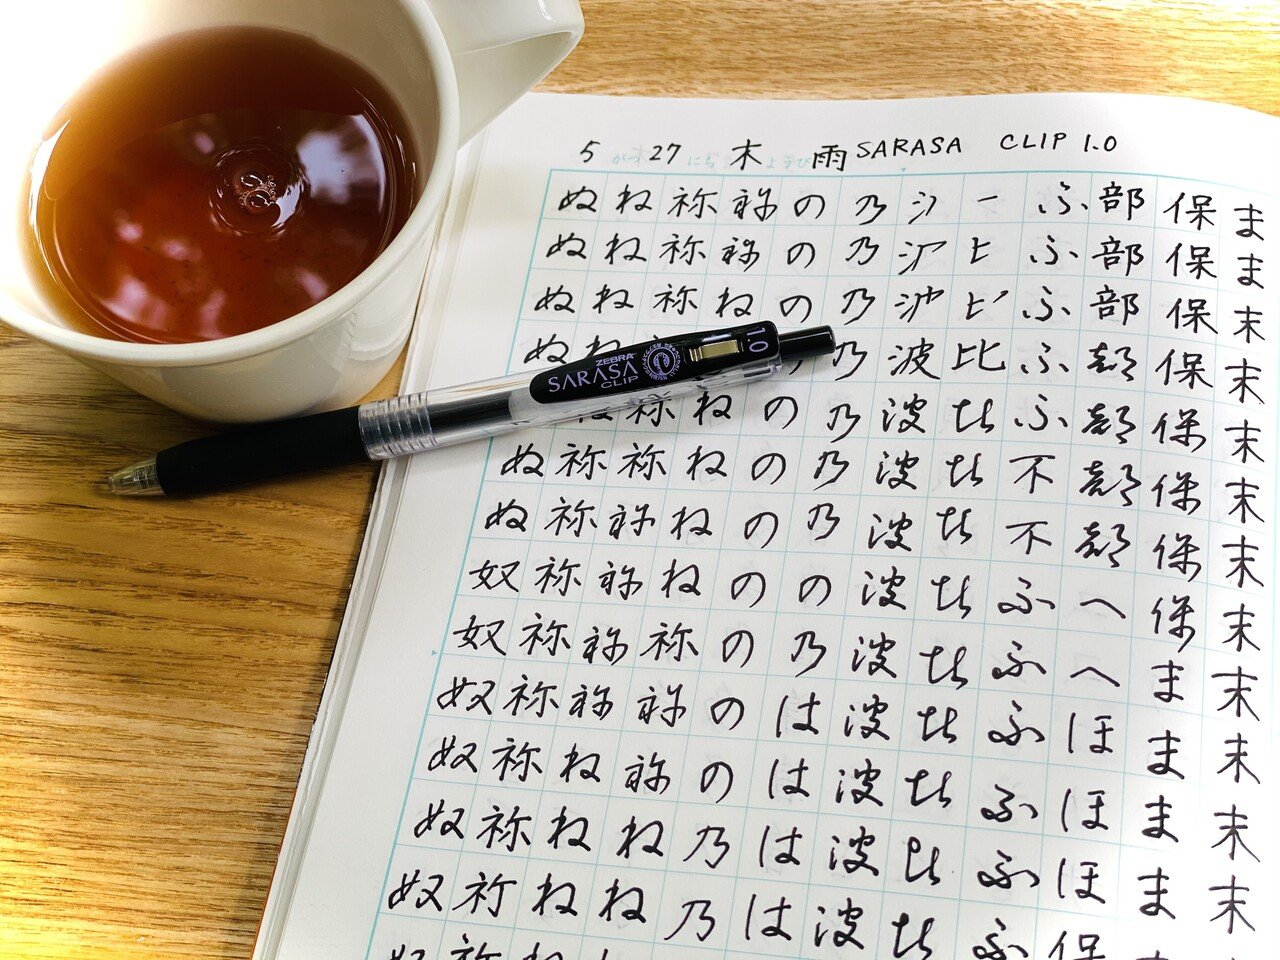 5 がつ 27 にち 木 ようび 雨 SARASA CLIP 1.0
ぬ ね 祢 祢 の 乃 ふ 部 保 ま
ぬ ね 祢 祢 の 乃 ふ 部 保 ま
ぬ ね 祢 ね の 乃 ふ 部 保 末
ぬ 乃 波 比 ふ 部 保 末
祢 ね の 乃 波 比 ふ 部 保 末
ぬ 祢 祢 ね の 乃 波 比 不 部 保 末
ぬ 祢 祢 ね の 乃 波 比 不 部 保 末
奴 祢 祢 ね の の 波 比 ふ へ 保 末
奴 祢 祢 祢 の 乃 波 比 ふ へ ま 末
奴 祢 祢 祢 の は 波 比 ふ ほ ま 末
奴 祢 ね 祢 の は 波 比 ふ ほ ま 末
奴 祢 ね ね 乃 は 波 比 ふ ほ ま 末
奴 祢 ね ね 乃 は 波 比 ふ ほ ま 末
ZEBRA
SARASA
CLIP
1.0